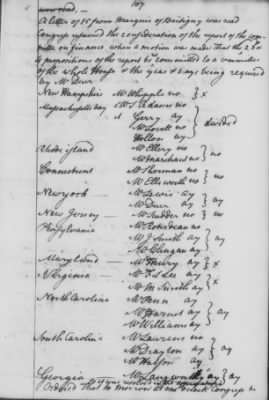 107
A letter of 15 from Marquis of Bretigny was read
Congress resumed the consideration of the report of the com
mittee on finance when a motion was made that the 2, 3 &
4 propositions of the report be committed to a committee
of the whole House & the yeas & nays being required
by Mr Duer
New Hampshire Mr Whipple no } x
Massachusetts bay Mr S Adams no
Gerry ay
Mr Lovell no
Holton ay } divided
Rhode island Mr Ellery no
Mr Marchant no } no
Connecticut Mr Sherman no
Mr Ellsworth no } no
New York Mr Lewis ay
Mr Duer ay } ay
New Jersey Mr Scudder no } no
Pensylvania Mr Roberdeau no
Mr J Smith ay
Mr Clingan ay } ay
Maryland Mr Henry ay } x
Virginia Mr F L Lee ay
Mr M Smith ay } x
North Carolina Mr Penn ay
Mr Harnet ay
Mr Williams ay } ay
South Carolina Mr Laurens no
Mr Drayton ay
Mr Hutson ay } ay
Georgia Mr Langworthy ay } ay
so it was resolved in the affirmative
Ordered that to morrow at one o'clock Congress be